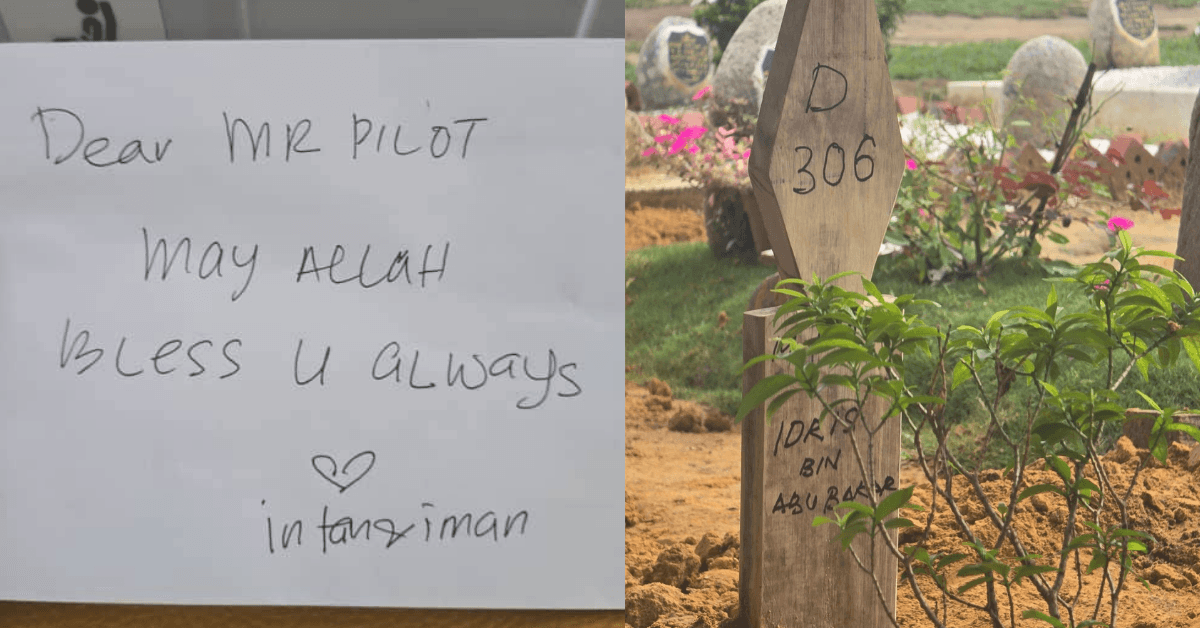 Dear MR PILOT
May ALLAH
BLess U ALWAYS
intan&iman
D
306
IDRIS
BIN
ABU BAKAR